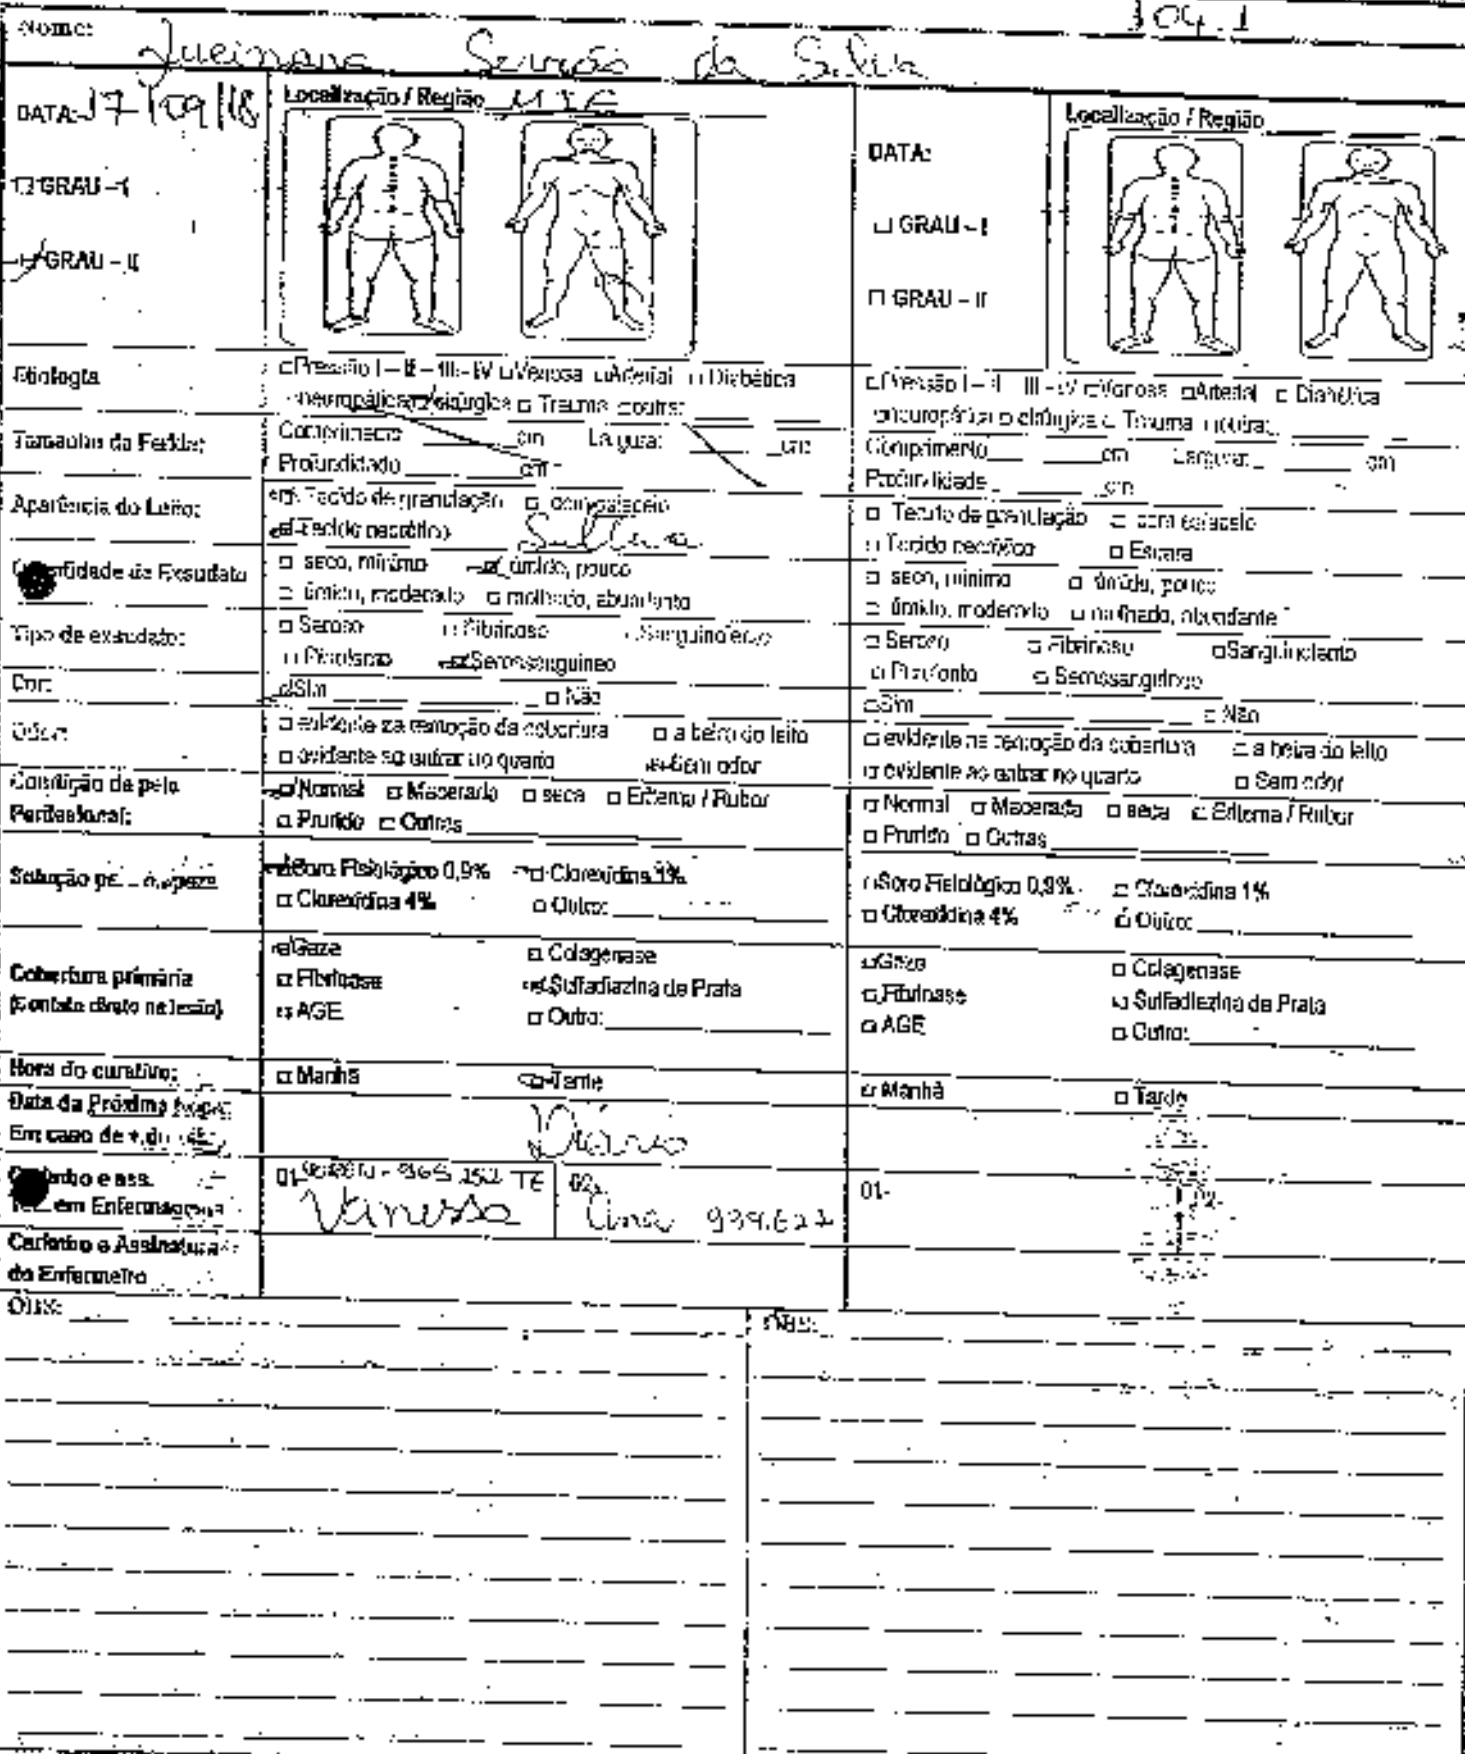 Nome: da Silva
104.1
DATA: 17/09/18
Localização / Região MIE
GRAU - I
GRAU - II
Etiologia
Pressão I - II - III - IV Venosa Arterial Diabética
neuropática cirúrgica Trauma outra:
Tamanho da Ferida:
Comprimento cm Largura: cm
Profundidade cm
Aparência do Leito:
Tecido de granulação com esfacelo
Tecido necrótico
Quantidade de Exsudato
seco, mínimo úmido, pouco
úmido, moderado molhado, abundante
Tipo de exsudato:
Seroso Fibrinoso Sanguinolento
Pirulento Serossanguineo
Cor:
Sim Não
Odor:
evidente na remoção da cobertura a beira do leito
evidente ao entrar no quarto Sem odor
Condição da pele
Perilesional:
Normal Macerada seca Eritema / Rubor
Prurido Outras
Solução
Soro Fisiológico 0,9% Clorexidina 1%
Clorexidina 4% Outro:
Cobertura primária
(Contato direto na lesão)
Gaze Colagenase
Fibrinase Sulfadiazina de Prata
AGE Outro:
Hora do curativo:
Manhã Tarde
Data da Próxima
Em caso de
Diário
Carimbo e ass.
Téc. em Enfermagem
01- TE
Vanessa
02- Ana 939.627
Carimbo e Assinatura
do Enfermeiro
OBS:
DATA:
Localização / Região
GRAU - I
GRAU - II
Pressão I - II III - IV Venosa Arterial Diabética
neuropática cirúrgica Trauma outra:
Comprimento cm Largura: cm
Profundidade cm
Tecido de granulação com esfacelo
Tecido necrótico Escara
seco, mínimo úmido, pouco
úmido, moderado molhado, abundante
Seroso Fibrinoso Sanguinolento
Serossanguineo
Sim Não
evidente na remoção da cobertura a beira do leito
evidente ao entrar no quarto Sem odor
Normal Macerada seca Eritema / Rubor
Prurido Outras
Soro Fisiológico 0,9% Clorexidina 1%
Clorexidina 4% Outro:
Gaze Colagenase
Fibrinase Sulfadiazina de Prata
AGE Outro:
Manhã Tarde
01-
OBS: